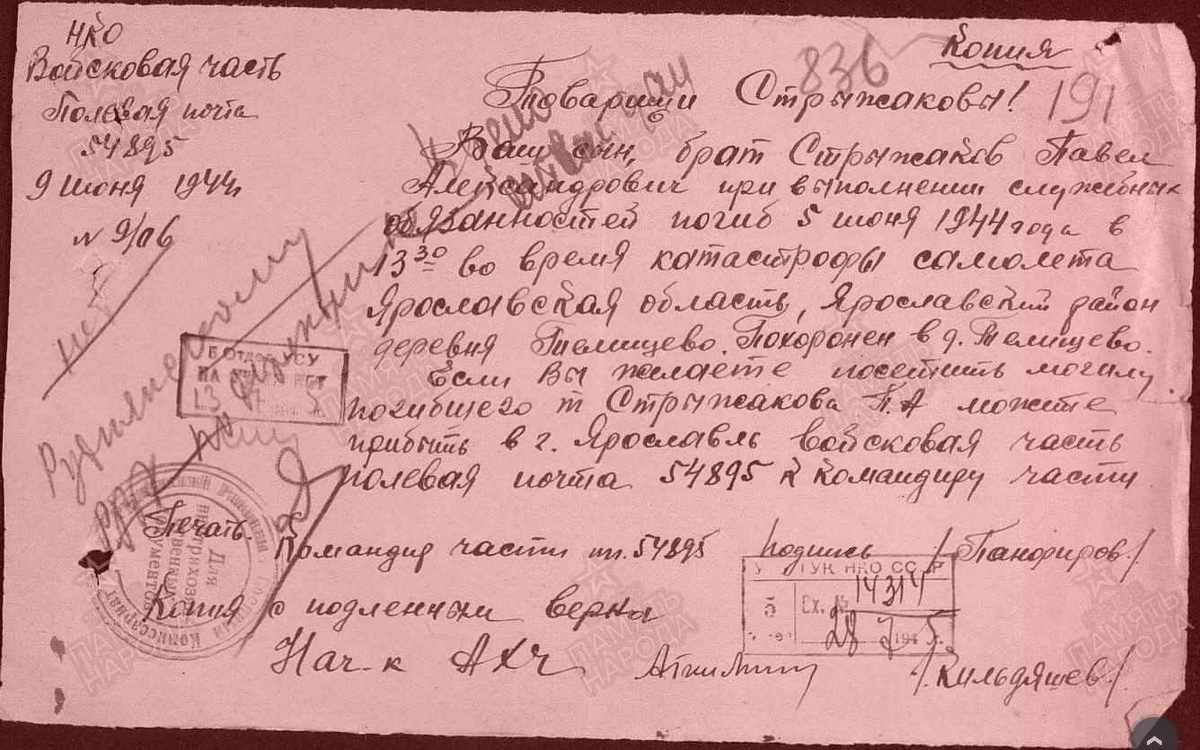 НКО
Войсковая часть
Полевая почта
54895
9 июня 1944г
№ 9/пб
Копия
836
191
Товарищи Стрыжаковы!
Ваш сын, брат Стрыжаков Павел
Александрович при выполнении служебных
обязанностей погиб 5 июня 1944 года в
13 30 во время катастрофы самолета
Ярославская область, Ярославский район
деревня Телищево. Похоронен в д. Телищево.
Если Вы желаете посетить могилу
погибшего т Стрыжакова П.А можете
прибыть в г. Ярославль войсковая часть
полевая почта 54895 к командиру части
Печать.
Командир части пп. 54895 подпись /Панфиров./
Копия с подленным верна
Нач-к АХЧ /Кильдяшев/
Отдел
13
ГУК НКО СССР
Вх. № 14314
28 7 1945
Для
документов
Комиссариат
ПАМЯТЬ НАРОДА